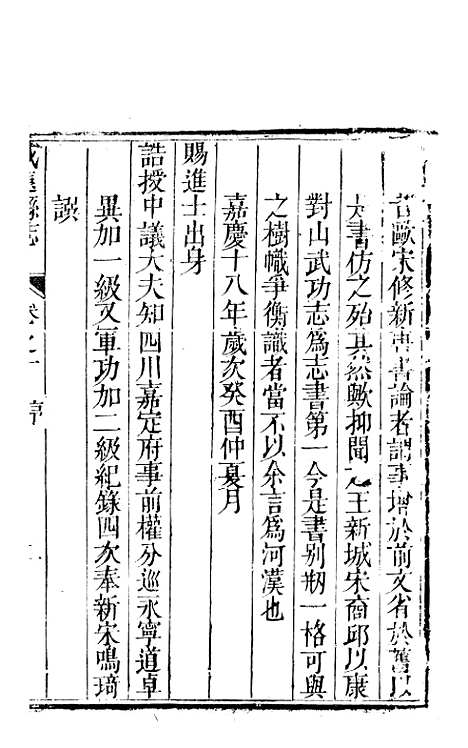 昔歐宋修新唐書論者謂事增於前文省於舊以
是書仿之殆其然歟抑聞之王新城宋商邱以康
對山武功志爲志書第一今是書別剏一格可與
之樹幟爭衡識者當不以余言爲河漢也
嘉慶十八年歲次癸酉仲夏月
賜進士出身
誥授中議大夫知四川嘉定府事前權分巡永寧道卓
異加一級又軍功加二級紀錄四次奉新宋鳴琦
譔
威遠縣志
卷之一 序